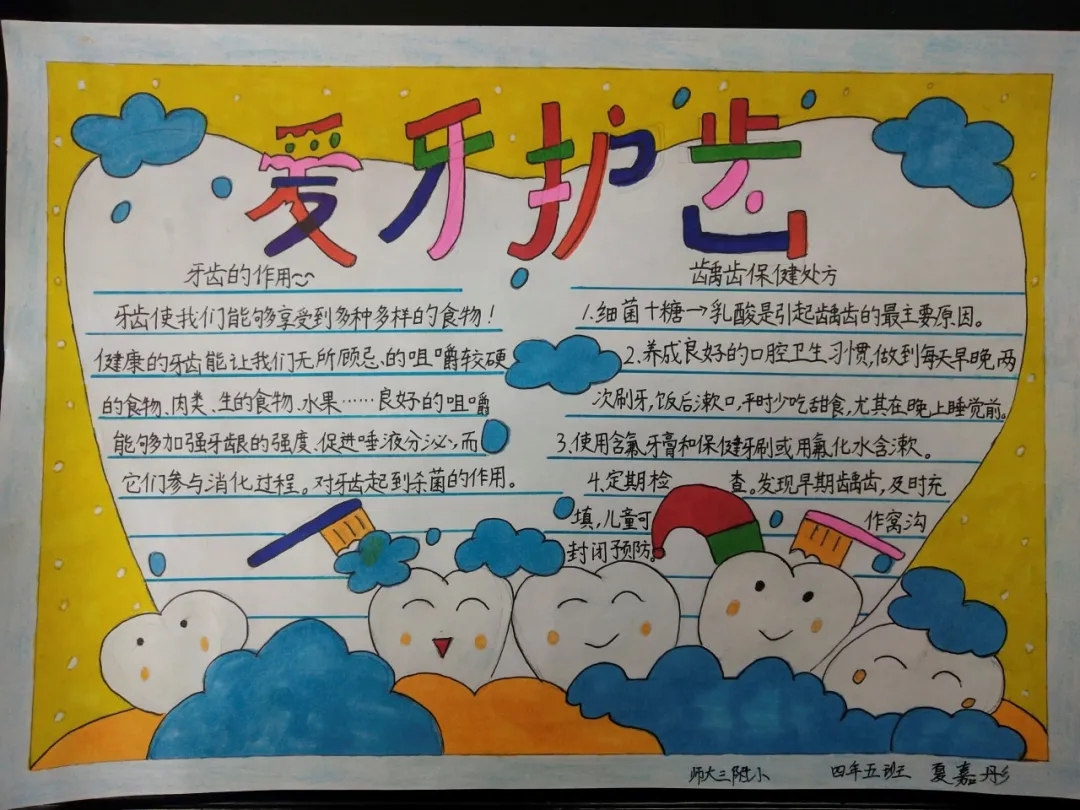 爱牙护齿
牙齿的作用~~
牙齿使我们能够享受到多种多样的食物!
健康的牙齿能让我们无所顾忌、的咀嚼较硬
的食物、肉类、生的食物、水果……良好的咀嚼
能够加强牙龈的强度、促进唾液分泌、而
它们参与消化过程。对牙齿起到杀菌的作用。
龋齿保健处方
1.细菌+糖→乳酸是引起龋齿的最主要原因。
2.养成良好的口腔卫生习惯,做到每天早晚,两
次刷牙,饭后漱口,平时少吃甜食,尤其在晚上睡觉前。
3.使用含氟牙膏和保健牙刷或用氟化水含漱。
4.定期检 查。发现早期龋齿,及时充
填,儿童可 作窝沟
封闭预防。
师大三附小 四年五班 夏嘉彤